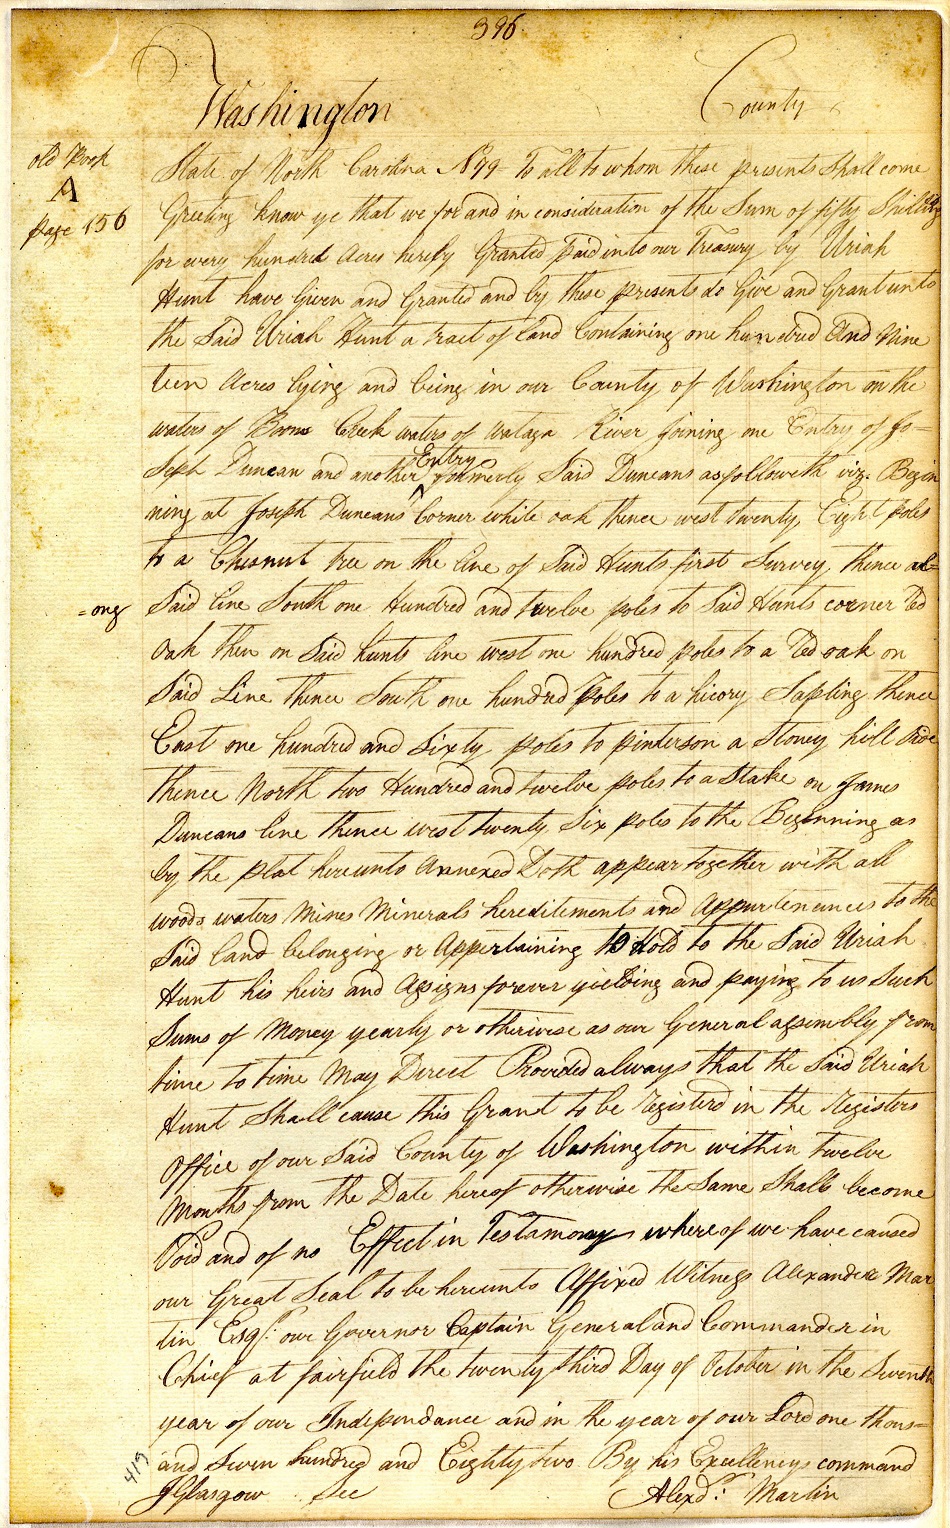 396
Washington County
old Book
A
page 156
State of North Carolina No 99 To all to whom these presents Shall come
Greeting know ye that we for and in consideration of the Sum of fifty Shillings
for every hundred Acres hereby Granted paid into our Treasury by Uriah
Hunt have Given and Granted and by these presents do Give and Grant unto
the Said Uriah Hunt a tract of land Containing one hundred And Nine
teen Acres lying and being in our County of Washington on the
waters of Boons Creek waters of wataga River joining one Entry of Jo=
Seph Duncan and another Entry formerly Said Duncans as followeth viz. Begin
ning at Joseph Duncans Corner white oak thence west twenty Eight poles
to a Chesnut tree on the line of Said Hunts first Survey thence al=
=ong Said line South one Hundred and twelve poles to Said Hunts corner Red
Oak then on Said hunts line west one hundred poles to a Red oak on
Said Line thence South one hundred Poles to a hicory Sapling thence
East one hundred and Sixty poles to pinterson a Stoney hill Side
thence North two Hundred and twelve poles to a Stake on James
Duncans line thence west twenty Six poles to the Beginning as
by the plat hereunto Annexed Doth appear together with all
woods waters Mines Minerals hereditements and Appurtenances to the
Said land belonging or Appertaining to Hold to the Said Uriah
Hunt his heirs and Assigns forever yielding and paying to us Such
Sums of Money yearly or otherwise as our General assembly from
time to time May Direct Provided always that the Said Uriah
Hunt Shall cause this Grant to be Registerd in the Registers
Office of our Said County of Washington within twelve
Months from the Date hereof otherwise the Same Shall become
Void and of no Effect in Testamony whereof we have caused
our Great Seal to be hereunto Affixed Witness Alexander Mar
tin Esqr. our Governor Captain General and Commander in
Chief at fairfield the twenty third Day of October in the Seventh
year of our Independance and in the year of our Lord one thous=
and Seven hundred and Eighty two By his Excellencys command
JGlasgow Sec Alexdr. Martin
419